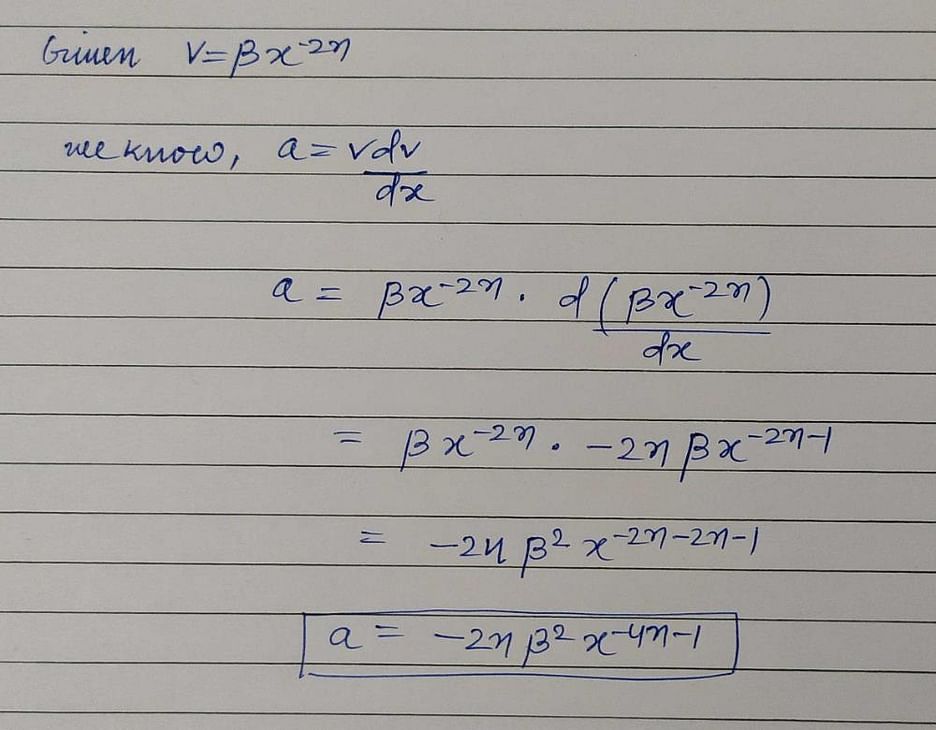 Given v=βx⁻²ⁿ
we know, a = v dv/dx
a = βx⁻²ⁿ . d(βx⁻²ⁿ)/dx
= βx⁻²ⁿ . -2nβx⁻²ⁿ⁻¹
= -2nβ²x⁻²ⁿ⁻²ⁿ⁻¹
a = -2nβ²x⁻⁴ⁿ⁻¹